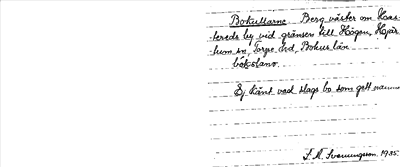 Bokullarne. Berg väster om Haas-
tereds by vid gränsen till Högen, Hjär-
tum sn, Torpe hd, Bohuslän.
bókolano.
Ej känt vad slags bo som gett namn
J. A. Svenungsson. 1935.